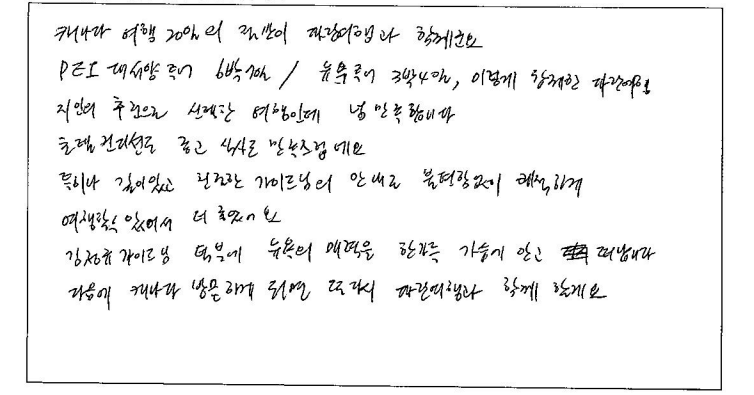 캐나다 여행 20일의 절반이 파란여행과 함께군요
PEI 대서양 투어 6박7일 / 뉴욕투어 3박4일, 이렇게 함께한 파란여행
지인의 추천으로 선택한 여행인데 넘 만족합니다
호텔 컨디션도 좋고 식사도 만족스럽네요
특히나 깊이있고 친절한 가이드님의 안내로 불편함없이 쾌적하게
여행할수 있어서 더 좋았어요
가이드님 덕분에 뉴욕의 매력을 한가득 가슴에 안고 떠납니다
다음에 캐나다 방문하게 되면 또다시 파란여행과 함께 할게요